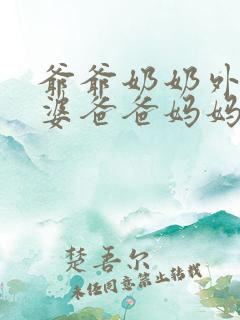 爷爷奶奶外
婆爸爸妈妈
楚吾尔
未经同意禁止转载